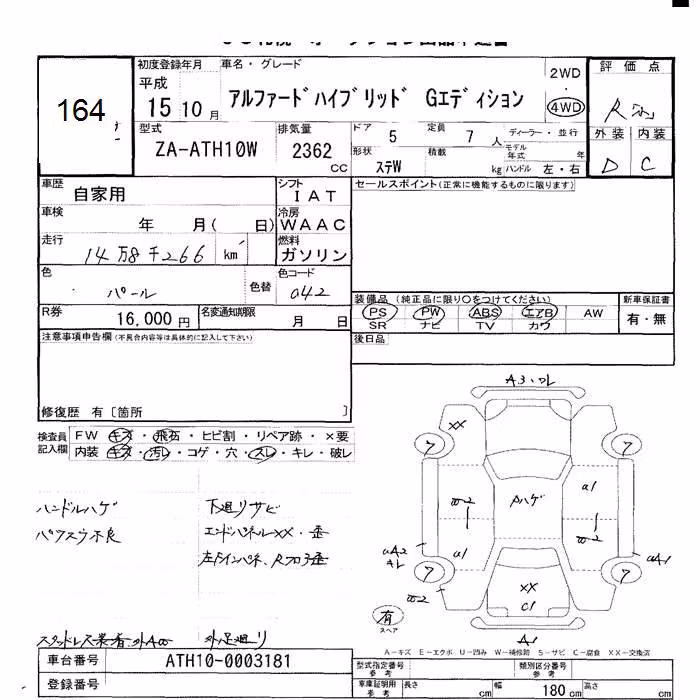 164
初度登録年月 車名・グレード
平成 15 10 月
アルファードハイブリッド Gエディション
2WD
4WD
評価点
R
外装 内装
D C
型式 ZA-ATH10W
排気量 2362 CC
ドア 5 定員 7 人
ディーラー・並行
形状 ステW 積載 kg
モデル年式 年
ハンドル 左・右
車歴 自家用
シフト IAT
セールスポイント(正常に機能するものに限ります)
車検 年 月( 日)
冷房 WAAC
走行 14万8千266 km
燃料 ガソリン
色 パール 色替
色コード 042
R券 16,000円
名変通知期限 月 日
装備品 (純正品に限り○をつけてください)
PS PW ABS エアB AW
SR ナビ TV カワ
新車保証書
有・無
注意事項申告欄(不具合内容等は具体的に記入して下さい)
後日品
修復歴 有〔箇所 〕
検査員記入欄
FW キズ・飛石・ヒビ割・リペア跡・×要
内装 キズ・汚レ・コゲ・穴・スレ・キレ・破レ
ハンドルハゲ 下廻リサビ
パワスラ不良 エンドパネルXX・歪
A3
XX
7 7
Aハゲ
a1
a1
7 7
XX
C1
有
スペア
A1
A-キズ E-エクボ U-凹み W-補修跡 S-サビ C-腐食 XX-交換済
車台番号 ATH10-0003181
登録番号
型式指定番号 参考
類別区分番号 参考
車庫証明用 参考 長さ cm 幅 180 cm 高さ cm